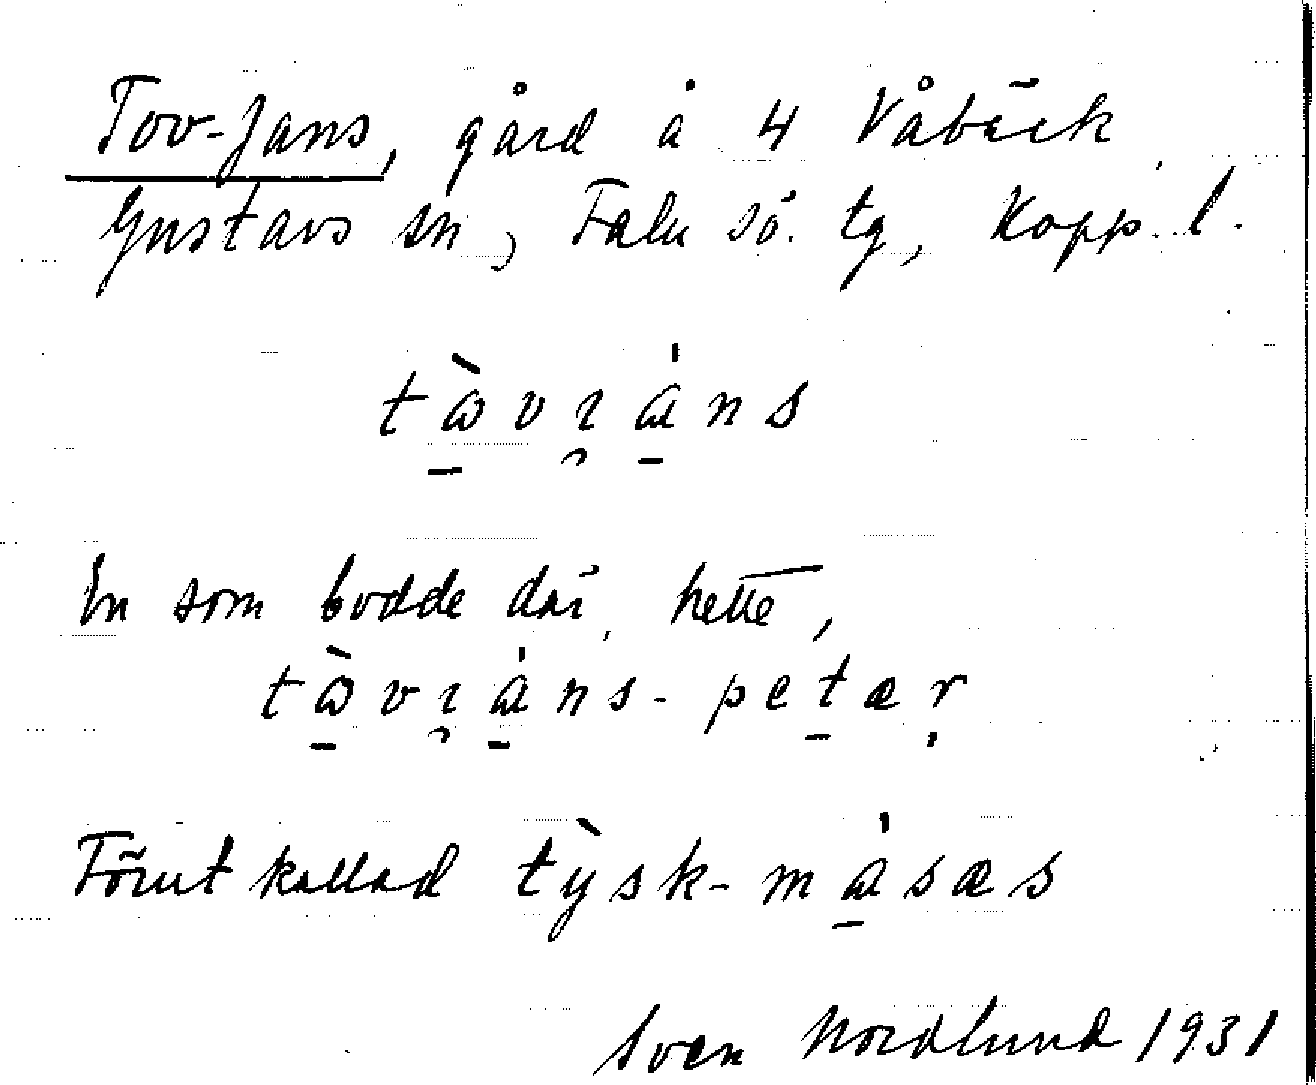 Tov-Jans, gård å 4 Våbäck
Gustavs sn, Falu sö. tg, Kopp. l.
tɷ̱̀vı̯a̱̍ns
En som bodde där, hette,
tɷ̱̀vı̯a̱̍ns-pet̠ær̩
Förut kallad tỳsk-ma̱̍sæs
Sven Nordlund 1931